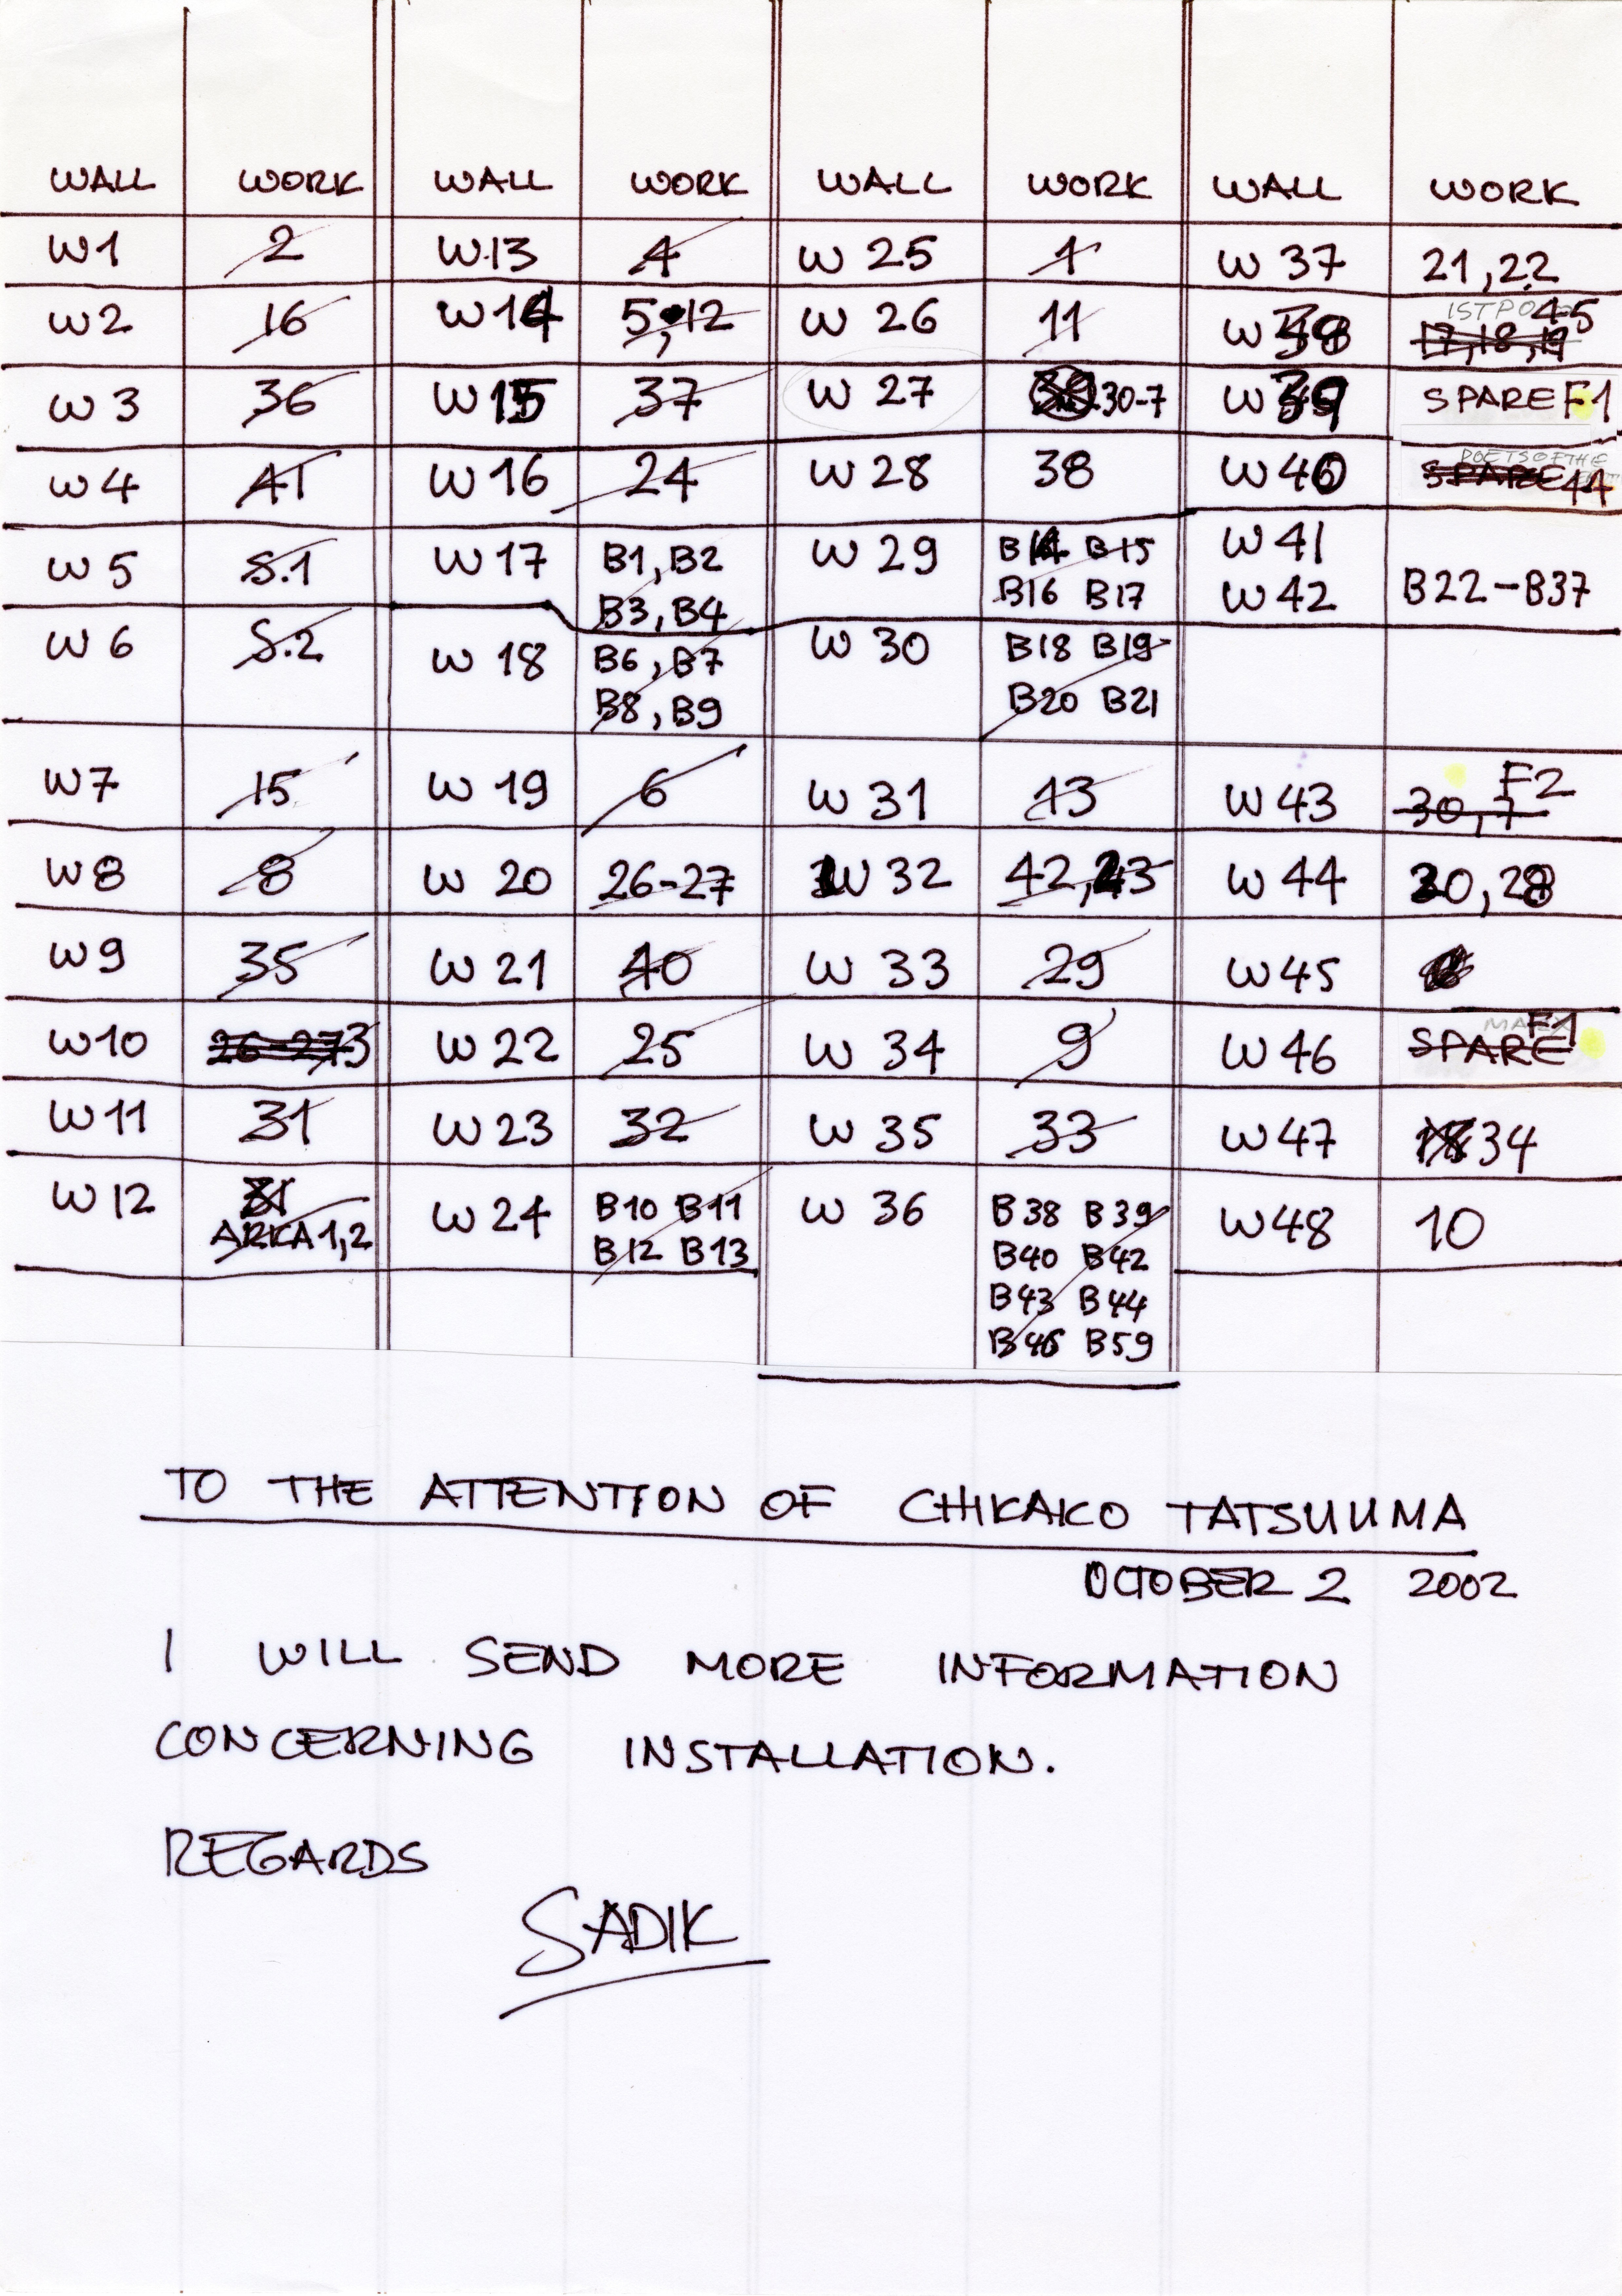 WALL WORK WALL WORK WALL WORK WALL WORK
W1 2 W13 4 W 25 1 W 37 21,22
W2 16 W14 5,12 W 26 11 W 38 45
17,18,19
W 3 36 W15 37 W 27 30-7 W39 SPARE F1
W 4 41 W 16 24 W 28 38 W40 POETS OF THE
SPARE 44
W 5 S.1 W 17 B1, B2 W 29 B14 B15 W 41
B3, B4 B16 B17 W 42 B22-B37
W 6 S.2 W 18 B6, B7 W 30 B18 B19
B8, B9 B20 B21
W7 15 W 19 6 W 31 13 W 43 F2
30, 7
W8 8 W 20 26-27 W 32 42, 43 W 44 20, 28
W9 35 W 21 40 W 33 29 W45
W10 26-27 3 W 22 25 W 34 9 W 46 F1
SPARE
W11 31 W 23 32 W 35 33 W 47 34
W 12 31 W 24 B10 B11 W 36 B38 B39 W48 10
ARKA 1,2 B12 B13 B40 B42
B43 B44
B46 B59
TO THE ATTENTION OF CHIKAKO TATSUUMA
OCTOBER 2 2002
I WILL SEND MORE INFORMATION
CONCERNING INSTALLATION.
REGARDS
SADIK